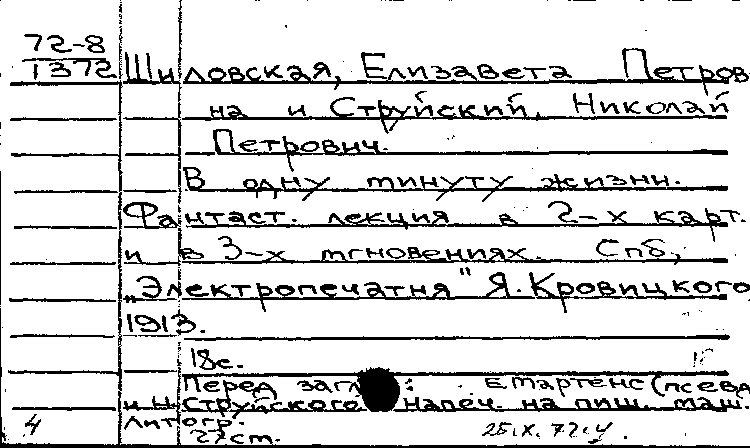 72-8
1372
Шиловская, Елизавета Петров
на и Струйский, Николай
Петрович.
В одну минуту жизни.
Фантаст. лекция в 2-х карт.
и в 3-х мгновениях. Спб,
„Электропечатня" Я. Кровицкого,
1913.
18с.
Перед загл : Е. Мартенс (псевд
и Н. Струйского напеч. на пиш. маш.
Литогр.
4 27 ст.